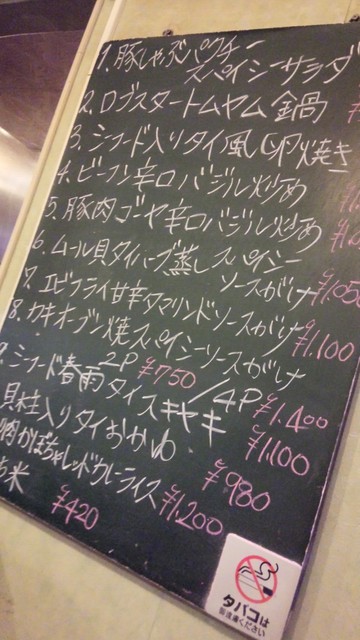 1. 豚しゃぶパクチー
スパイシーサラダ
2. ロブスタートムヤム鍋
3. シフード入りタイ風卵焼き
4. ビーフン辛口バジル炒め
5. 豚肉ゴーヤ辛口バジル炒め
6. ムール貝タイハーブ蒸しスパイシー
ソースがけ ¥1.05
7. エビフライ甘辛タマリンドソースがけ ¥1.100
8. カキオーブン焼スパイシーソースがけ
2P ¥750 / 4P ¥1.400
9. シフード春雨タイスキヤキ ¥1,100
貝柱入りタイおかゆ ¥980
肉かぼちゃレッドカレーライス ¥1.200
米 ¥420
タバコは
御遠慮ください